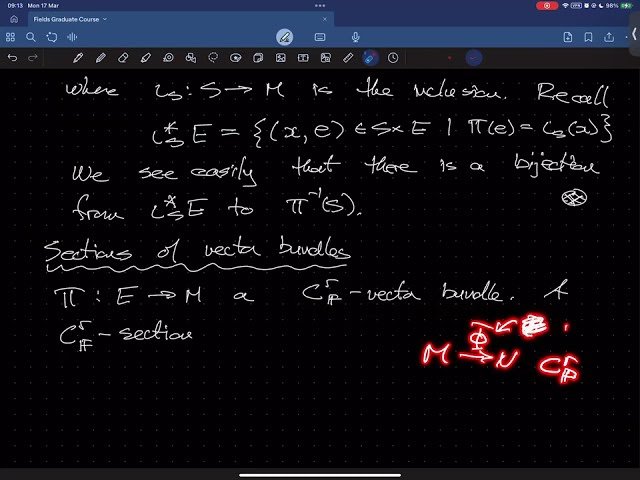 09:13 Mon 17 Mar
98%
Fields Graduate Course
where ι_S : S → M is the inclusion. Recall
ι_S^* E = {(x, e) ∈ S × E | π(e) = ι_S(x)}
We see easily that there is a bijection
from ι_S^* E to π^{-1}(S).
Sections of vector bundles
π : E → M a C^r_𝔽 - vector bundle. A
C^r_𝔽 - section
Φ
M → N C^r_𝔽